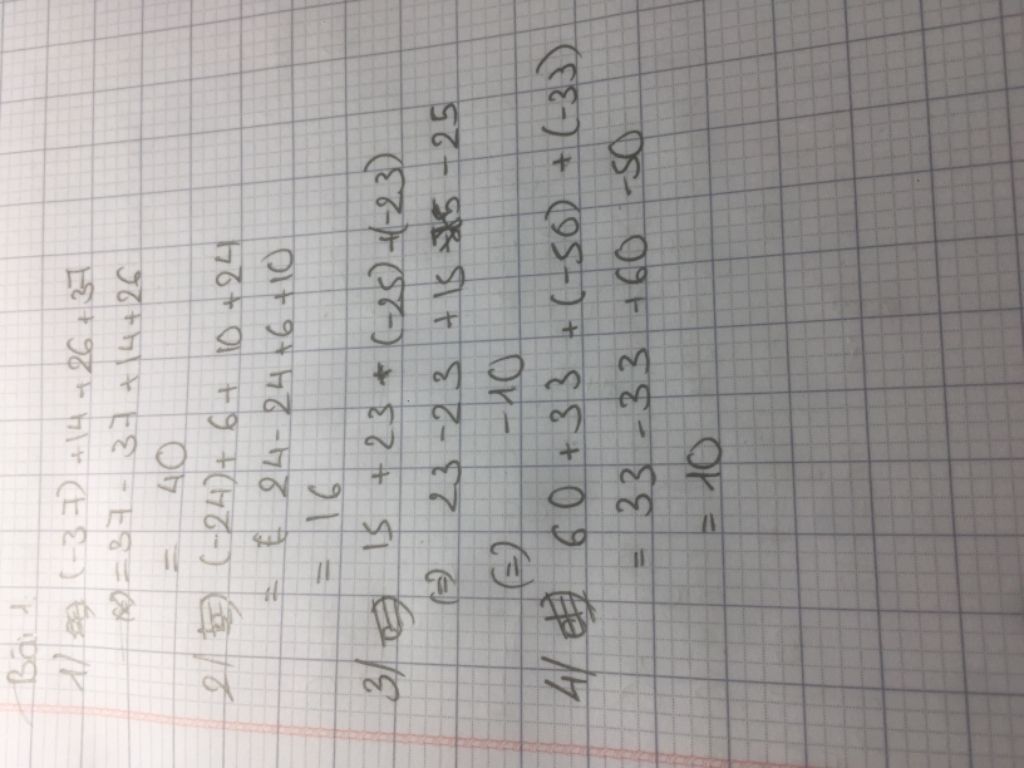 Bài 1:
1) (-37) +14 + 26 +37
= 37 - 37 +14 +26
= 40
2) (-24) + 6 + 10 +24
= 24 - 24 +6 +10
= 16
3) 15 +23 + (-25) +(-23)
(=) 23 -23 +15 -25
(=) -10
4) 60 +33 +(-50) +(-33)
= 33 -33 +60 -50
= 10